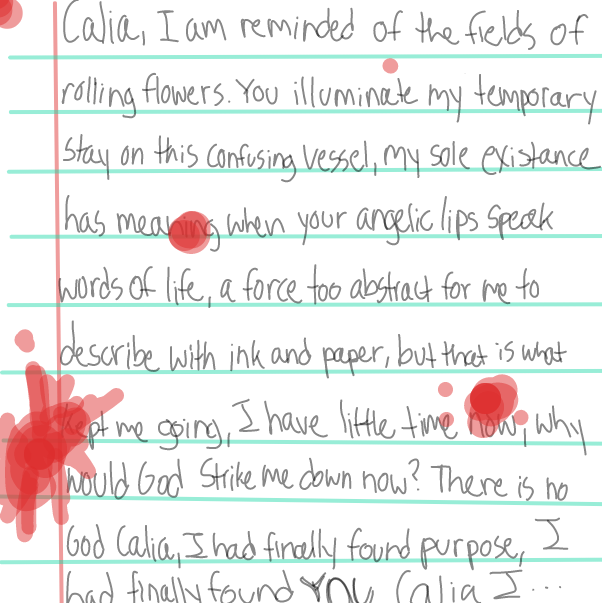 Calia, I am reminded of the fields of
rolling flowers. You illuminate my temporary
stay on this confusing vessel, my sole existance
has meaning when your angelic lips speak
words of life, a force too abstract for me to
describe with ink and paper, but that is what
kept me going, I have little time now, why
would God strike me down now? There is no
God Calia, I had finally found purpose, I
had finally found you, Calia I...